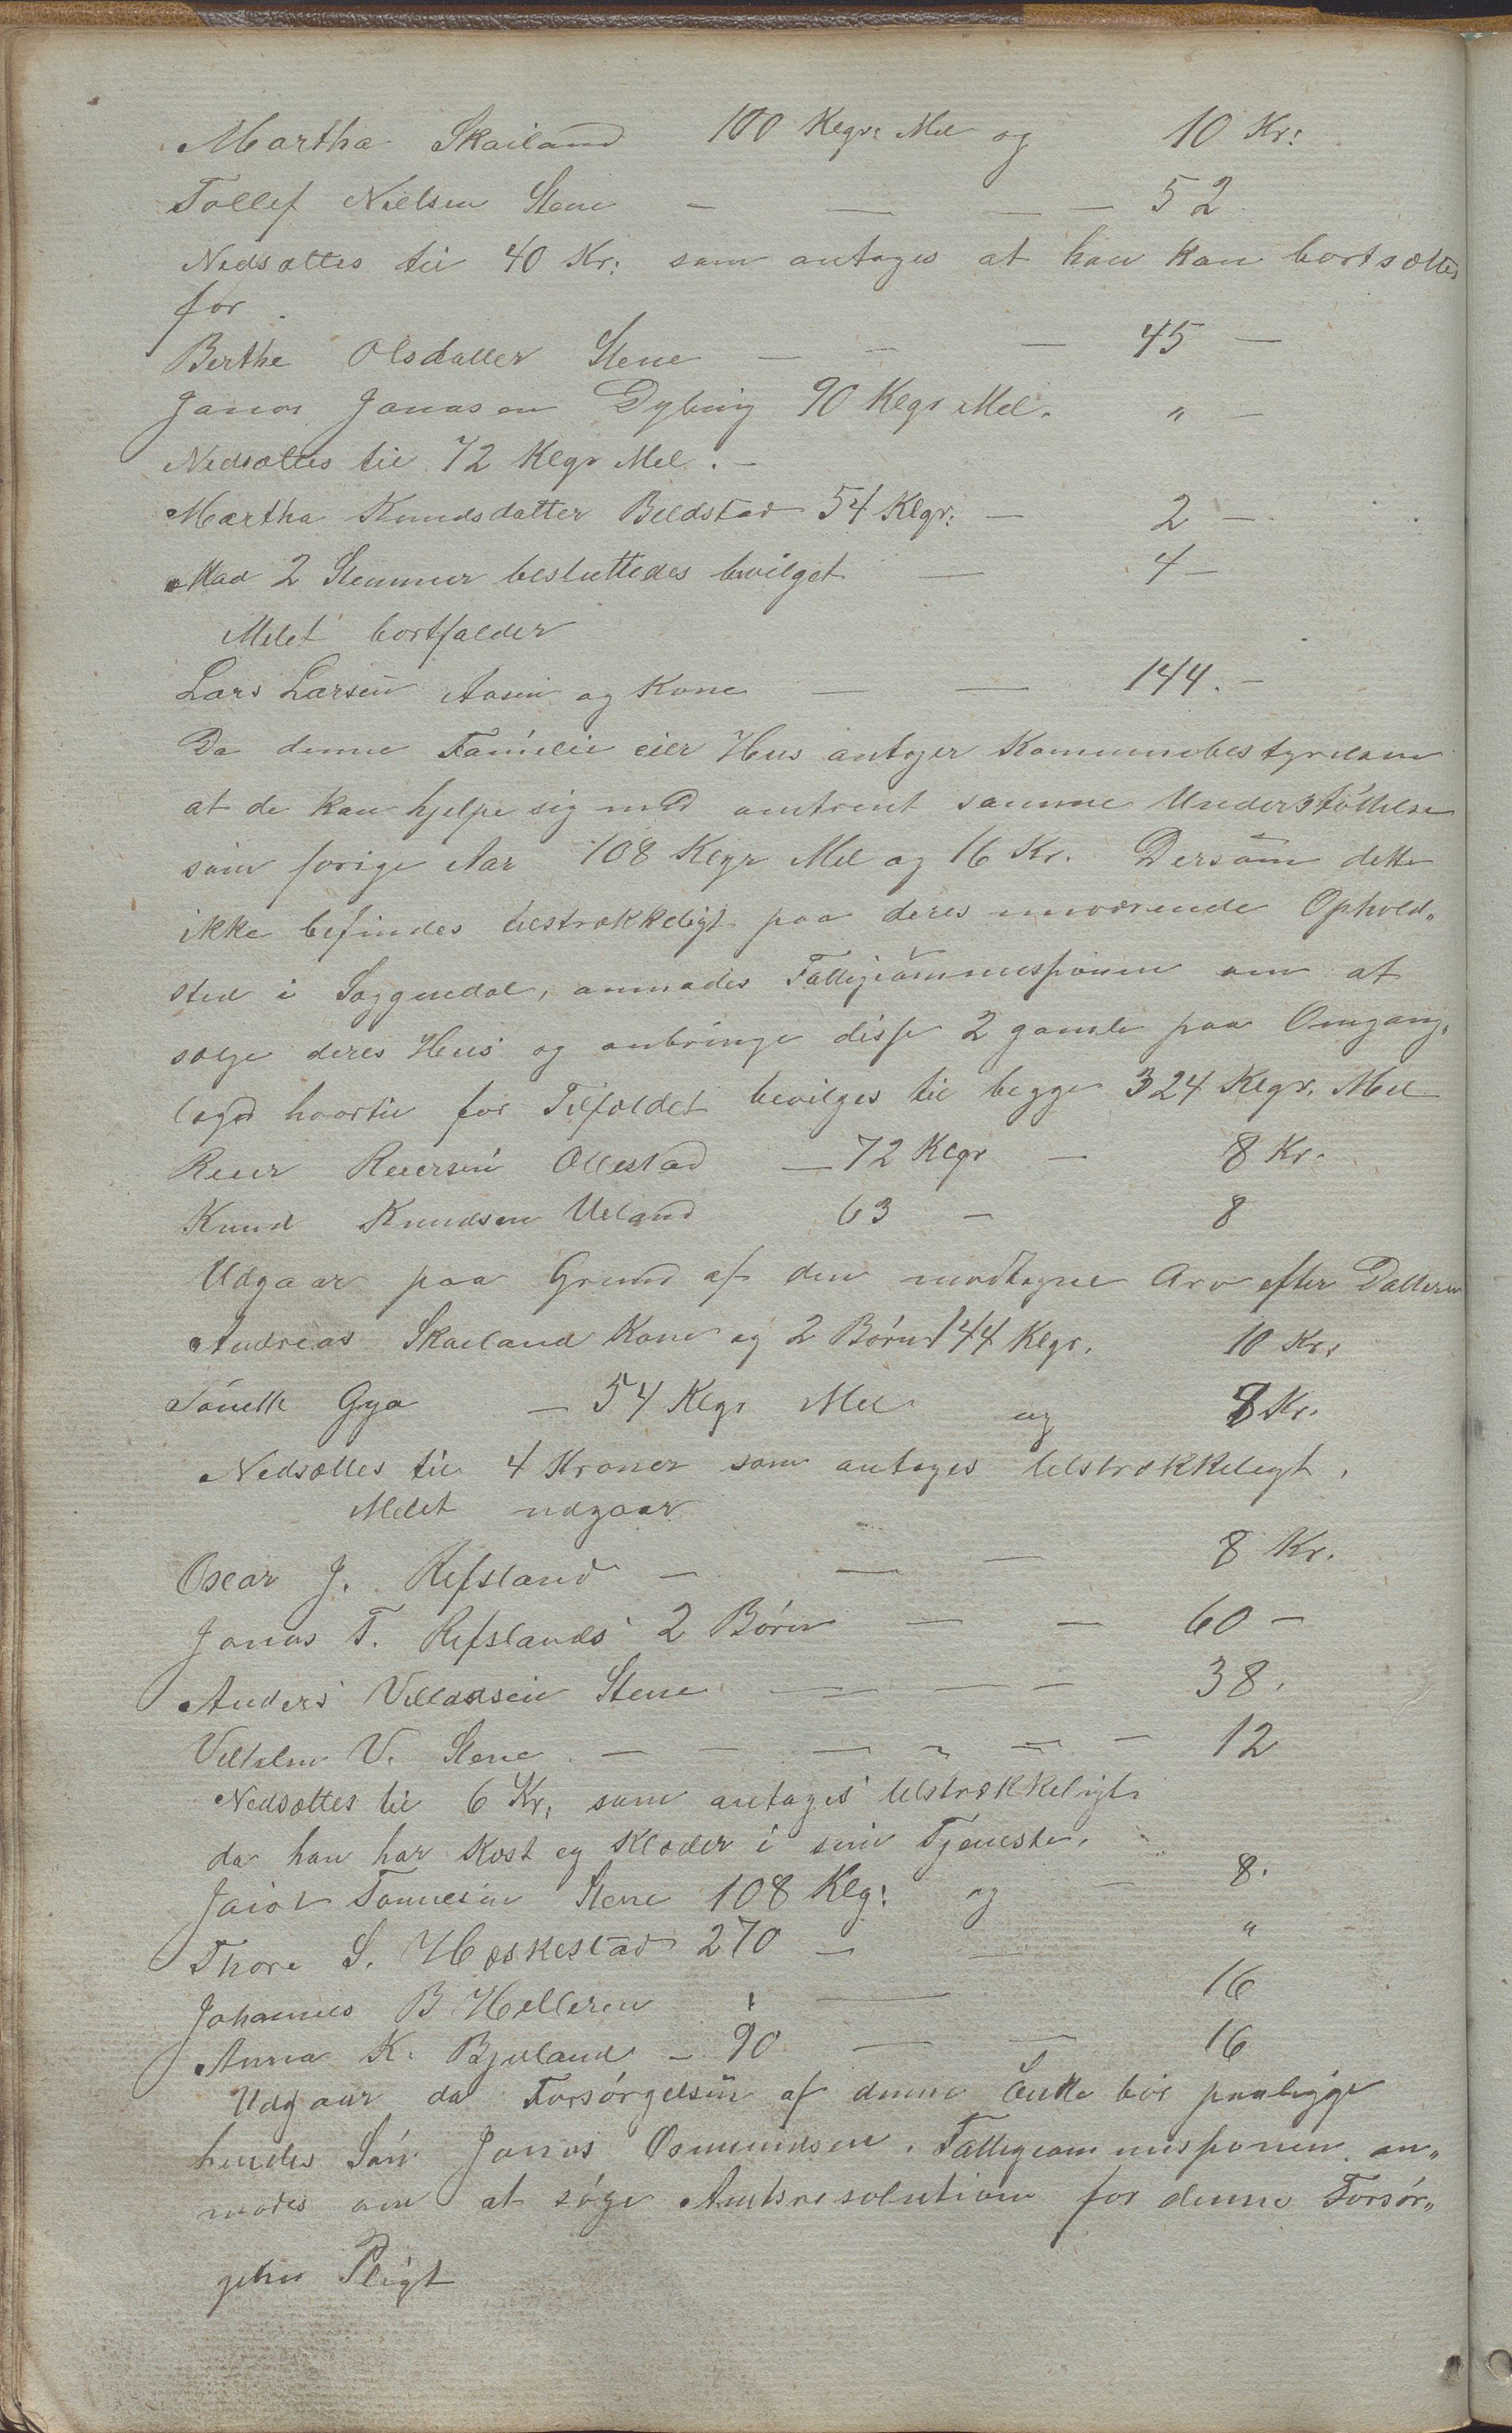 Martha Skailand 100 Klgr: Mel og 10 Kr:
Tollef Nielsen Stene — — — — 52
Nedsættes til 40 Kr: som antages at han kan bortsættes
for.
Berthe Olsdatter Stene — — — 45 —
Janas Janasen Dybing 90 Klgr Mel. " —
Nedsættes til 72 Klgr Mel. —
Martha Knudsdatter Beldstad 54 Klgr: — 2 —
Mod 2 Stemmer besluttedes bevilget — 4 —
Melet bortfalder
Lars Larsen Aasen og Kone — — 144. —
Da denne Familie eier Hus antager Kommunebestyrelsen
at de kan hjelpe sig med omtrent samme Understøttelse
som forige Aar 108 Klgr Mel og 16 Kr. Dersom dette
ikke befindes tilstrækkeligt paa deres nuværende Ophold„
sted i Soggendal, anmodes Fattigcommissionen om at
sælge deres Hus og anbringe disse 2 gamle paa Omgang„
lægd hvortil for Tilfældet bevilges til begge 324 Klgr. Mel
Reier Reiersen Ollestad — 72 Klgr — 8 Kr.
Knud Knudsen Ueland 63 — 8
Udgaar paa Grund af den modtagne Arv efter Datteren
Andreas Skailand Kone og 2 Børn 144 Klgr. 10 Kr:
Tønette Gya — 54 Klgr Mel og 8 Kr.
Nedsættes til 4 Kroner som antages tilstrækkeligt,
Melet udgaar
Oscar J. Refsland — — — 8 Kr.
Jonas T. Refslands 2 Børn — — 60 —
Anders Villadsen Stene — — — 38.
Vilhelm V. Stene — — — — — — 12
Nedsættes til 6 Kr, som antages tilstrækkeligt
da han har Kost og Klæder i sin Tjeneste.
Tønnesen Stene 108 Klg: og — 8.
Thore S. Hæskestad 270 — — "
Johannes B Helleren : — 16
Anna K. Bjuland — 90 — — 16
Udgaar da Forsørgelsen af denne Enke bør paaligge
hendes Søn Jonas Osmundsen. Fattigcommissionen an„
modes om at søge Amtsresolution for denne Forsør„
gelses Pligt